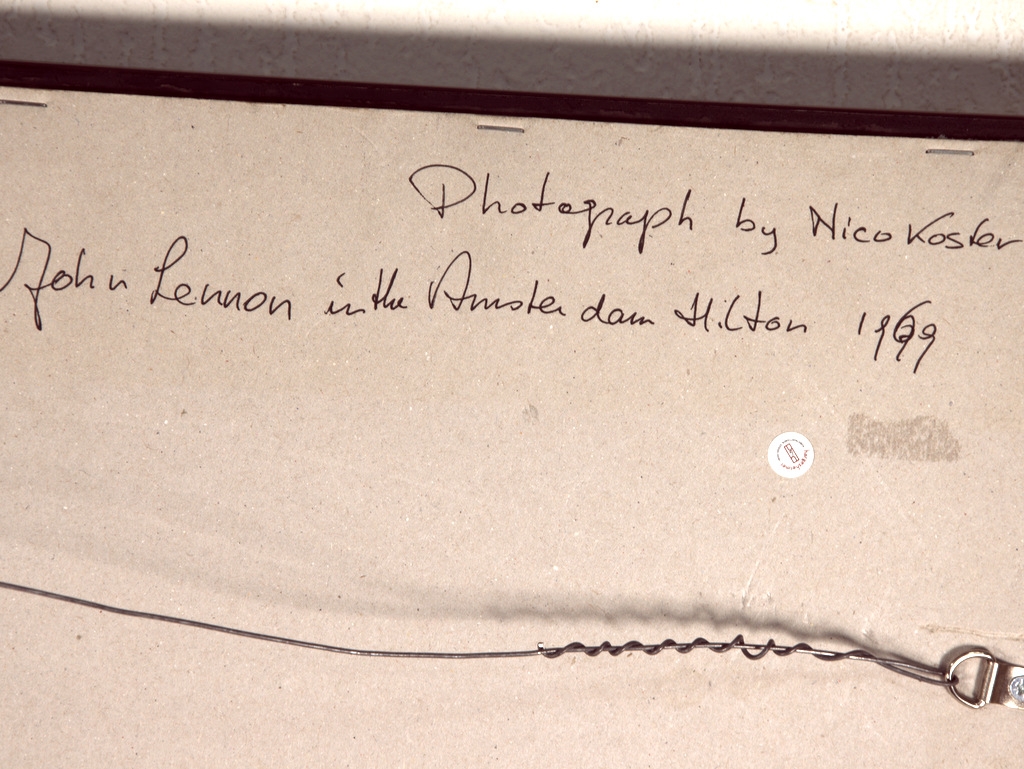 Photograph by Nico Koster
John Lennon in the Amsterdam Hilton 1969